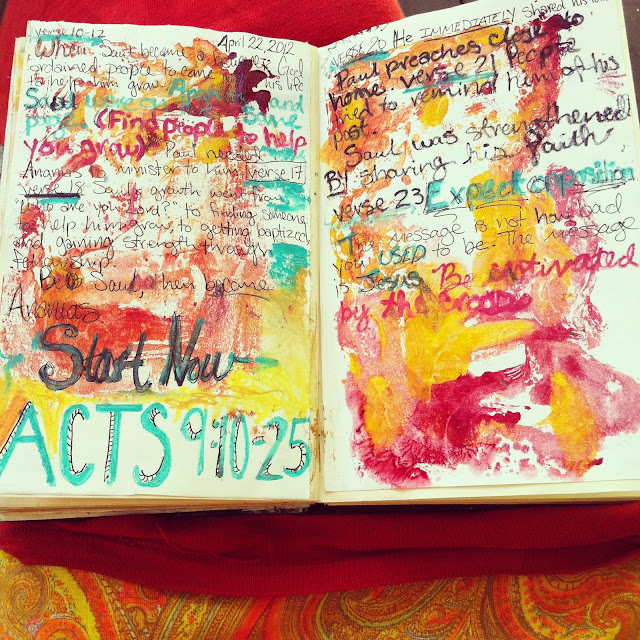 verse 10-12
April 22, 2012
When Saul became a believer, God
ordained people to come his life
to help him grow.
Saul and
(Find people to help
you grow) Paul
Ananias to minister to him. verse 17
verse 18 Saul's growth went from
"who are you Lord?" to finding someone
to help him grow to getting baptized
and gaining strength through
fellowship.
Be Saul, then become
Ananias
Start Now
ACTS 9:10-25
verse 20 He IMMEDIATELY shared his
Paul preaches close to
home. verse 21 People
tried to remind him of his
past.
Saul was strengthened
By sharing his faith
verse 23 Expect opposition
The message is not how bad
you USED to be. The message
is Jesus. Be motivated
by the